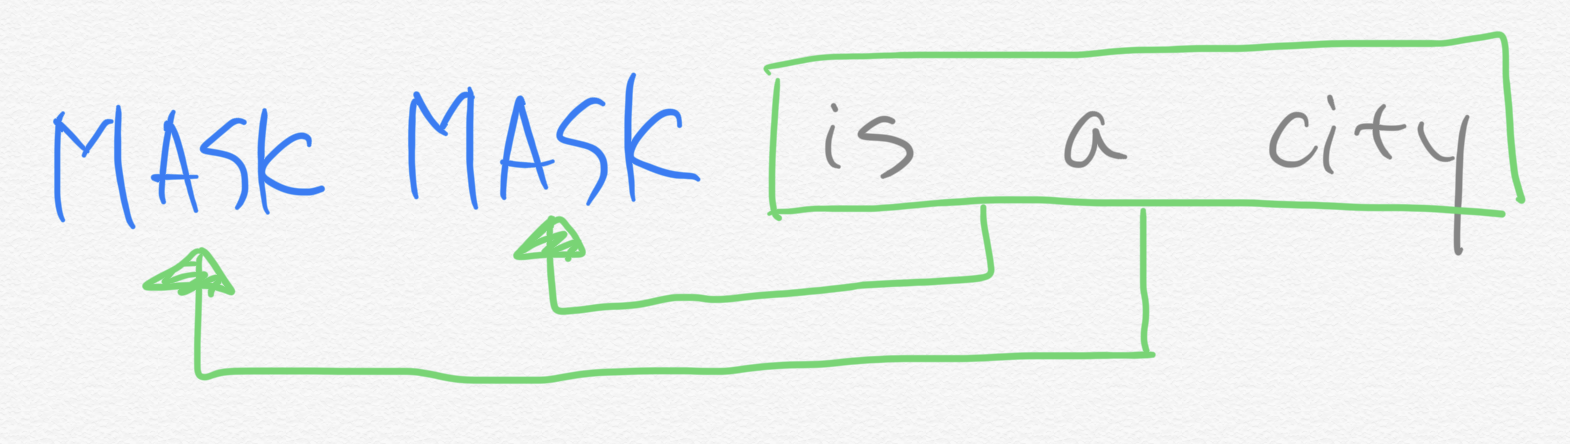 MASK MASK is a city